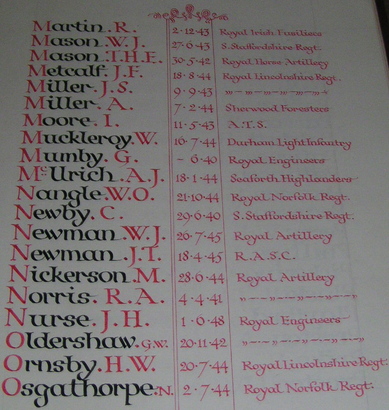 Martin. R. 2·12·43 Royal Irish Fusiliers
Mason. W.J. 27·6·43 S. Staffordshire Regt.
Mason. T.H.E. 30·5·42 Royal Horse Artillery
Metcalf. J.F. 18·8·44 Royal Lincolnshire Regt.
Miller. J.S. 9·9·43 " — " — " — " — "
Miller. A. 7·2·44 Sherwood Foresters
Moore. I. 11·5·43 A.T.S.
Muckleroy. W. 16·7·44 Durham Light Infantry
Munby. G. – 6·40 Royal Engineers
McUrich. A.J. 18·1·44 Seaforth Highlanders
Nangle. W.O. 21·10·44 Royal Norfolk Regt.
Newby. C. 29·6·40 S. Staffordshire Regt.
Newman. W.J. 26·7·45 Royal Artillery
Newman. J.T. 18·4·45 R.A.S.C.
Nickerson. M. 28·6·44 Royal Artillery
Norris. R.A. 4·4·41 " — " — " — " — "
Nurse. J.H. 1·6·48 Royal Engineers
Oldershaw. G.W. 20·11·42 " — " — " — " — "
Ornsby. H.W. 20·7·44 Royal Lincolnshire Regt.
Osgathorpe. N. 2·7·44 Royal Norfolk Regt.